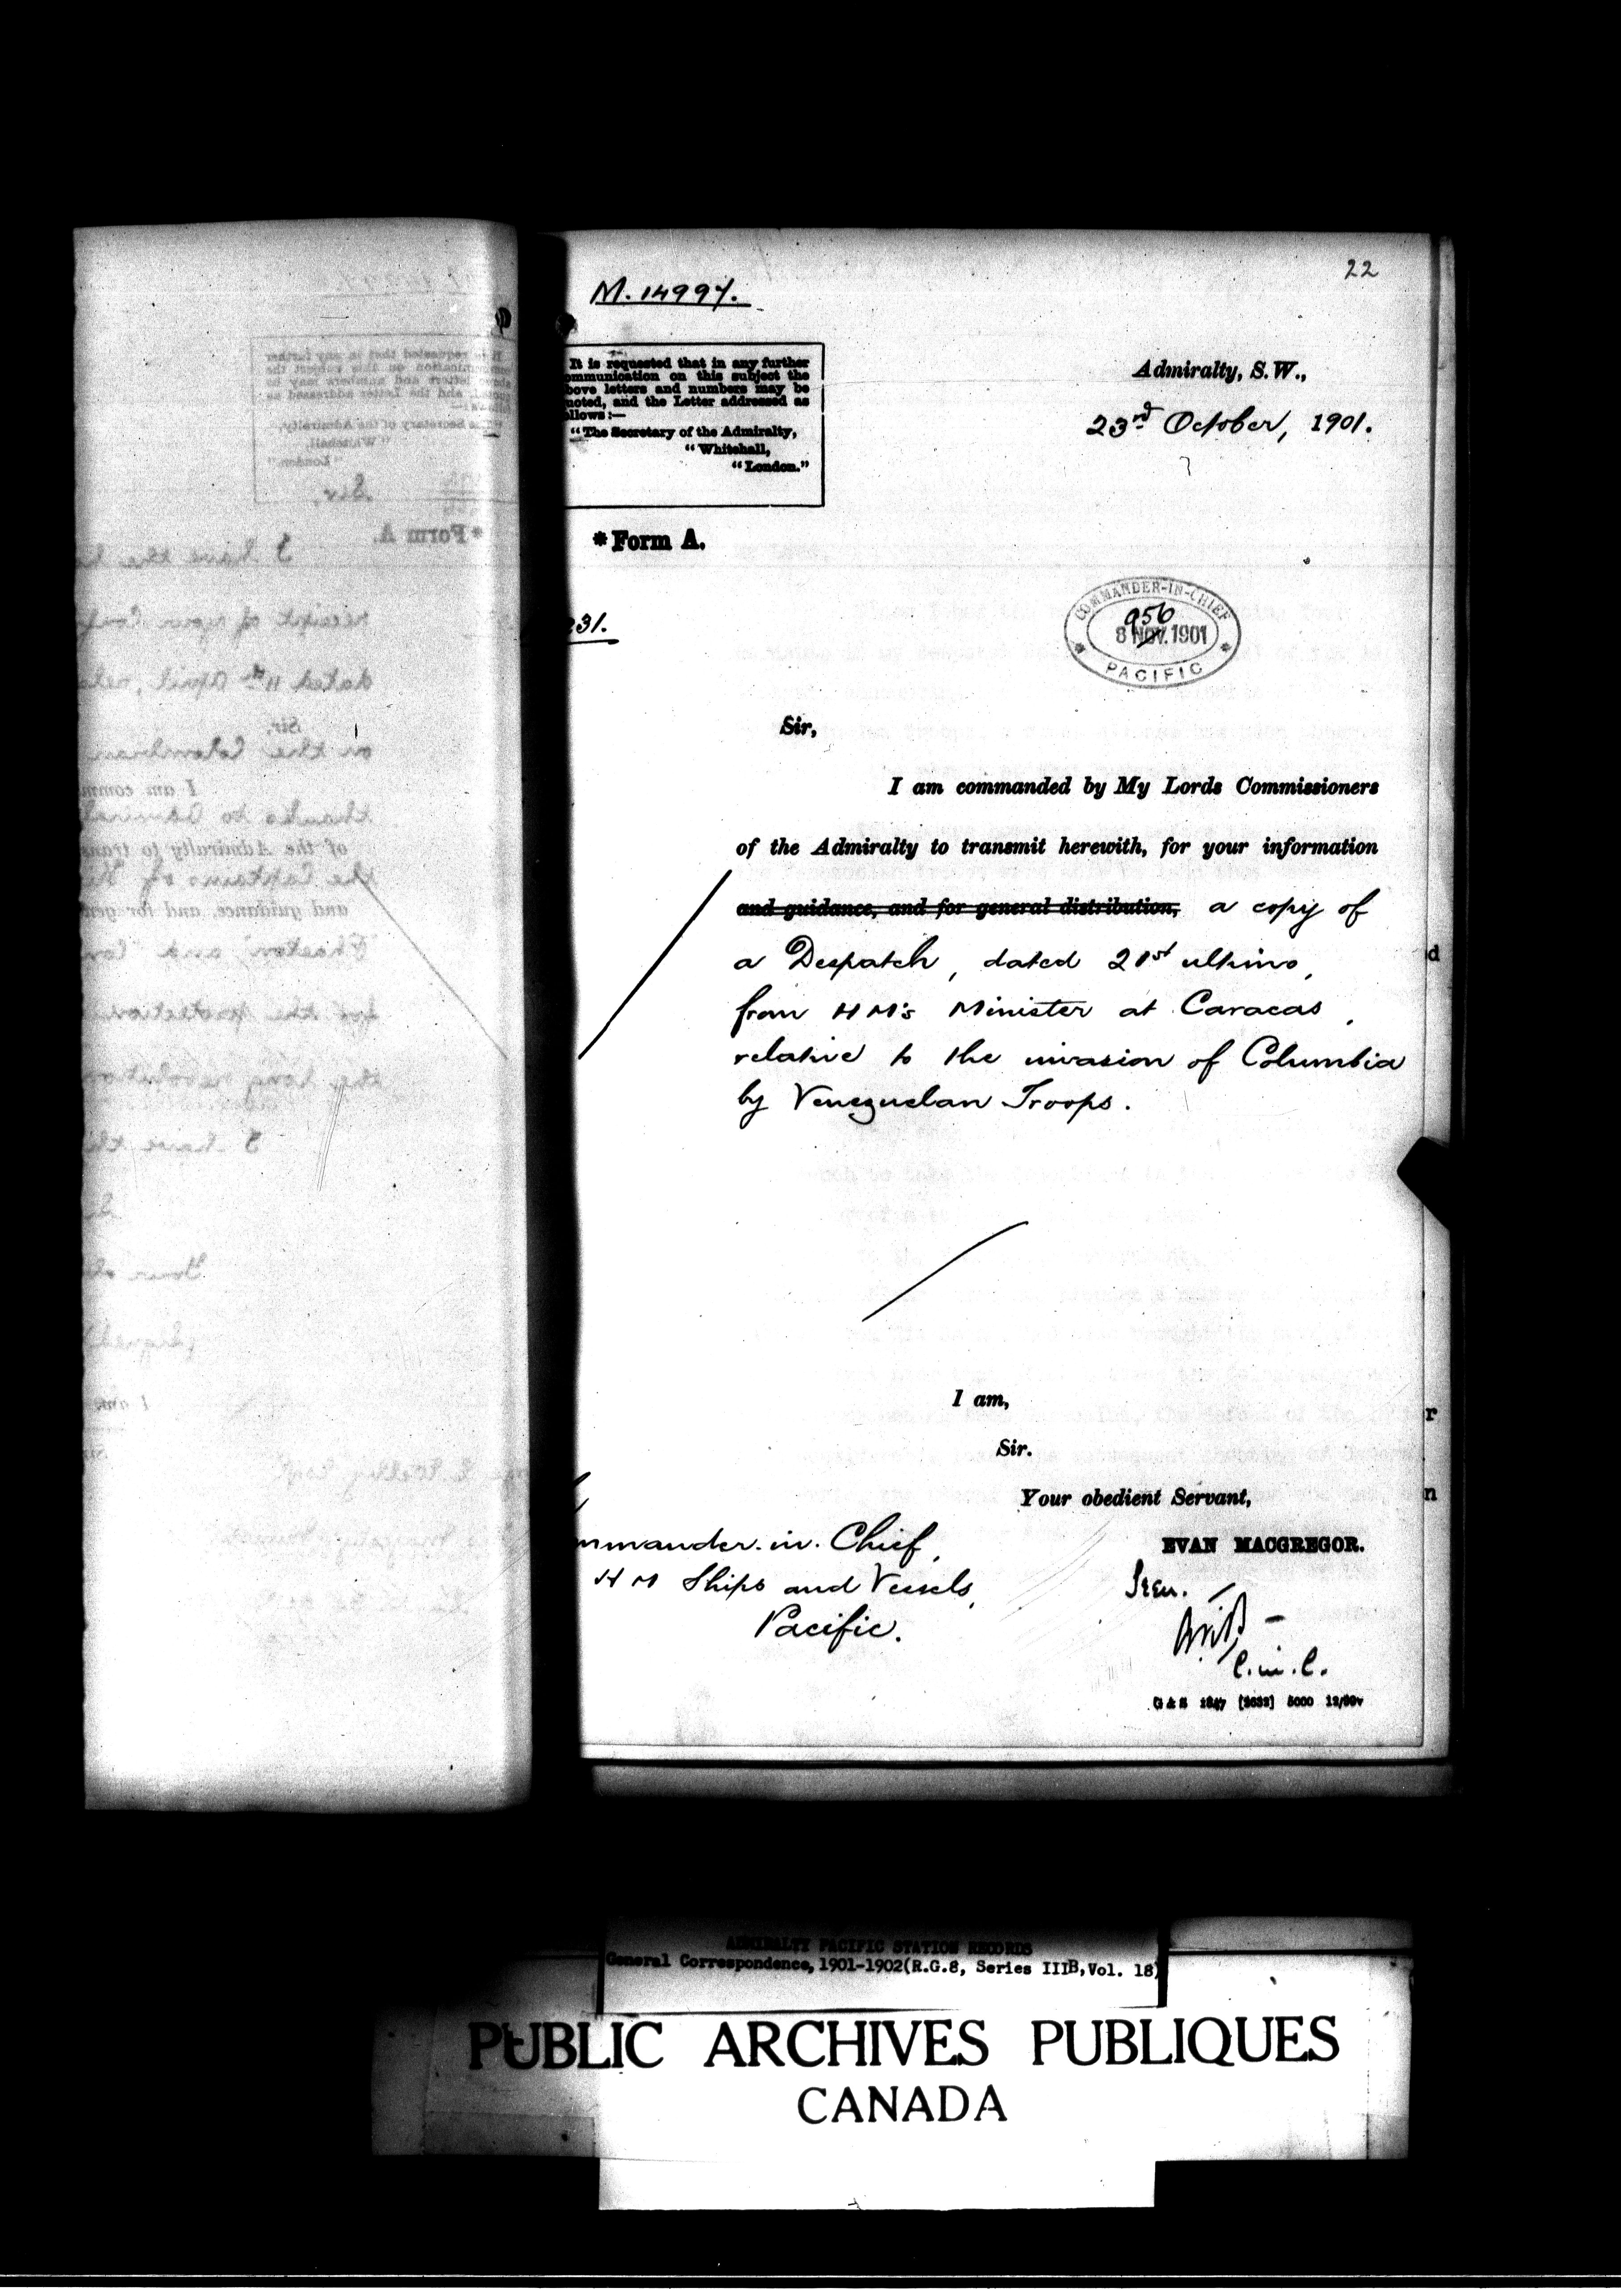 22
M. 14997.
It is requested that in any further
ommunication on this subject the
bove letters and numbers may be
uoted, and the Letter addressed as
llows:—
"The Secretary of the Admiralty,
"Whitehall,
"London."
Admiralty, S.W.,
23rd October, 1901.
*Form A.
231.
COMMANDER-IN-CHIEF
956
8 NOV. 1901
PACIFIC
Sir,
I am commanded by My Lords Commissioners
of the Admiralty to transmit herewith, for your information
and guidance, and for general distribution, a copy of
a Despatch, dated 21st ultimo,
from HM's Minister at Caracas,
relative to the invasion of Columbia
by Venezuelan Troops.
I am,
Sir.
Your obedient Servant,
EVAN MACGREGOR.
mmander. in. Chief,
HM Ships and Vessels,
Pacific.
Seen.
C. in. C.
G & S 1847 [3632] 5000 12/99
ADMIRALTY PACIFIC STATION RECORDS
General Correspondence, 1901-1902(R.G.8, Series IIIB,Vol. 18)
PUBLIC ARCHIVES PUBLIQUES
CANADA